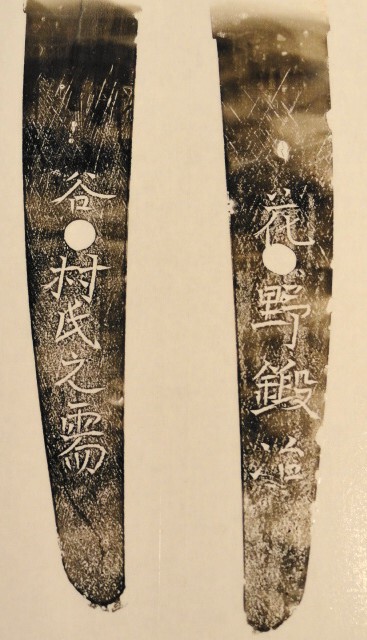 花野鍛造
谷村氏之需